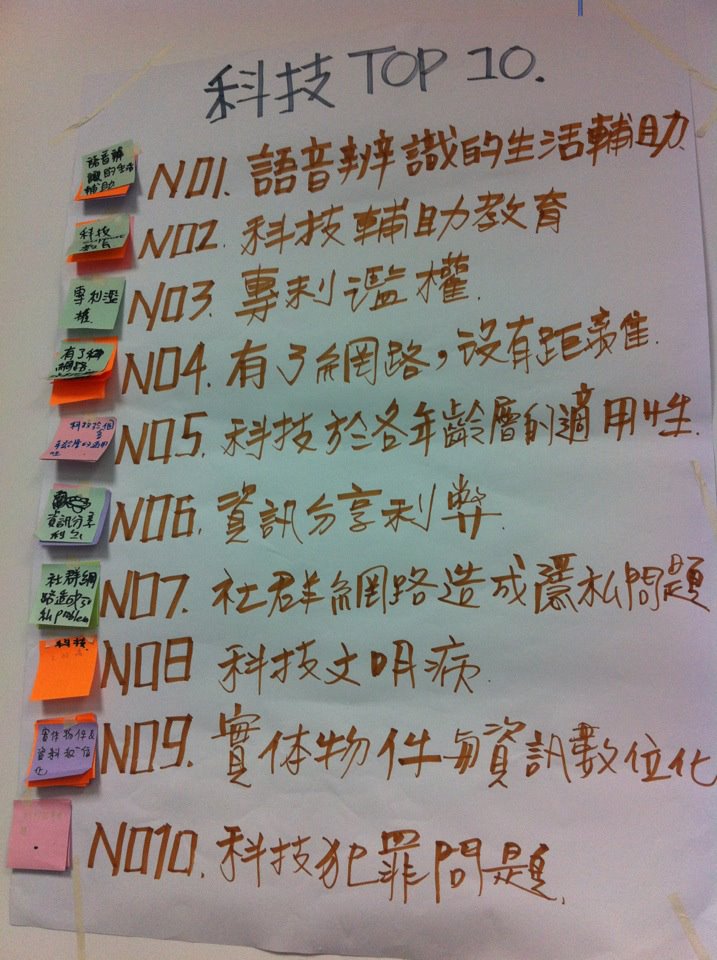 科技 TOP 10.
語音辨
識的生活
輔助
NO1. 語音辨識的生活輔助
科技
教育
NO2. 科技輔助教育
專利濫
權
NO3. 專利濫權
有了
網路
NO4. 有了網路，沒有距離.
NO5. 科技於各年齡層的適用性.
資訊分享
NO6. 資訊分享利弊.
社群網
路造成隱
私problem
NO7. 社群網路造成隱私問題
科技
NO8 科技文明病.
實体物件&
資料數位
化
NO9. 實体物件與資訊數位化
NO10. 科技犯罪問題.